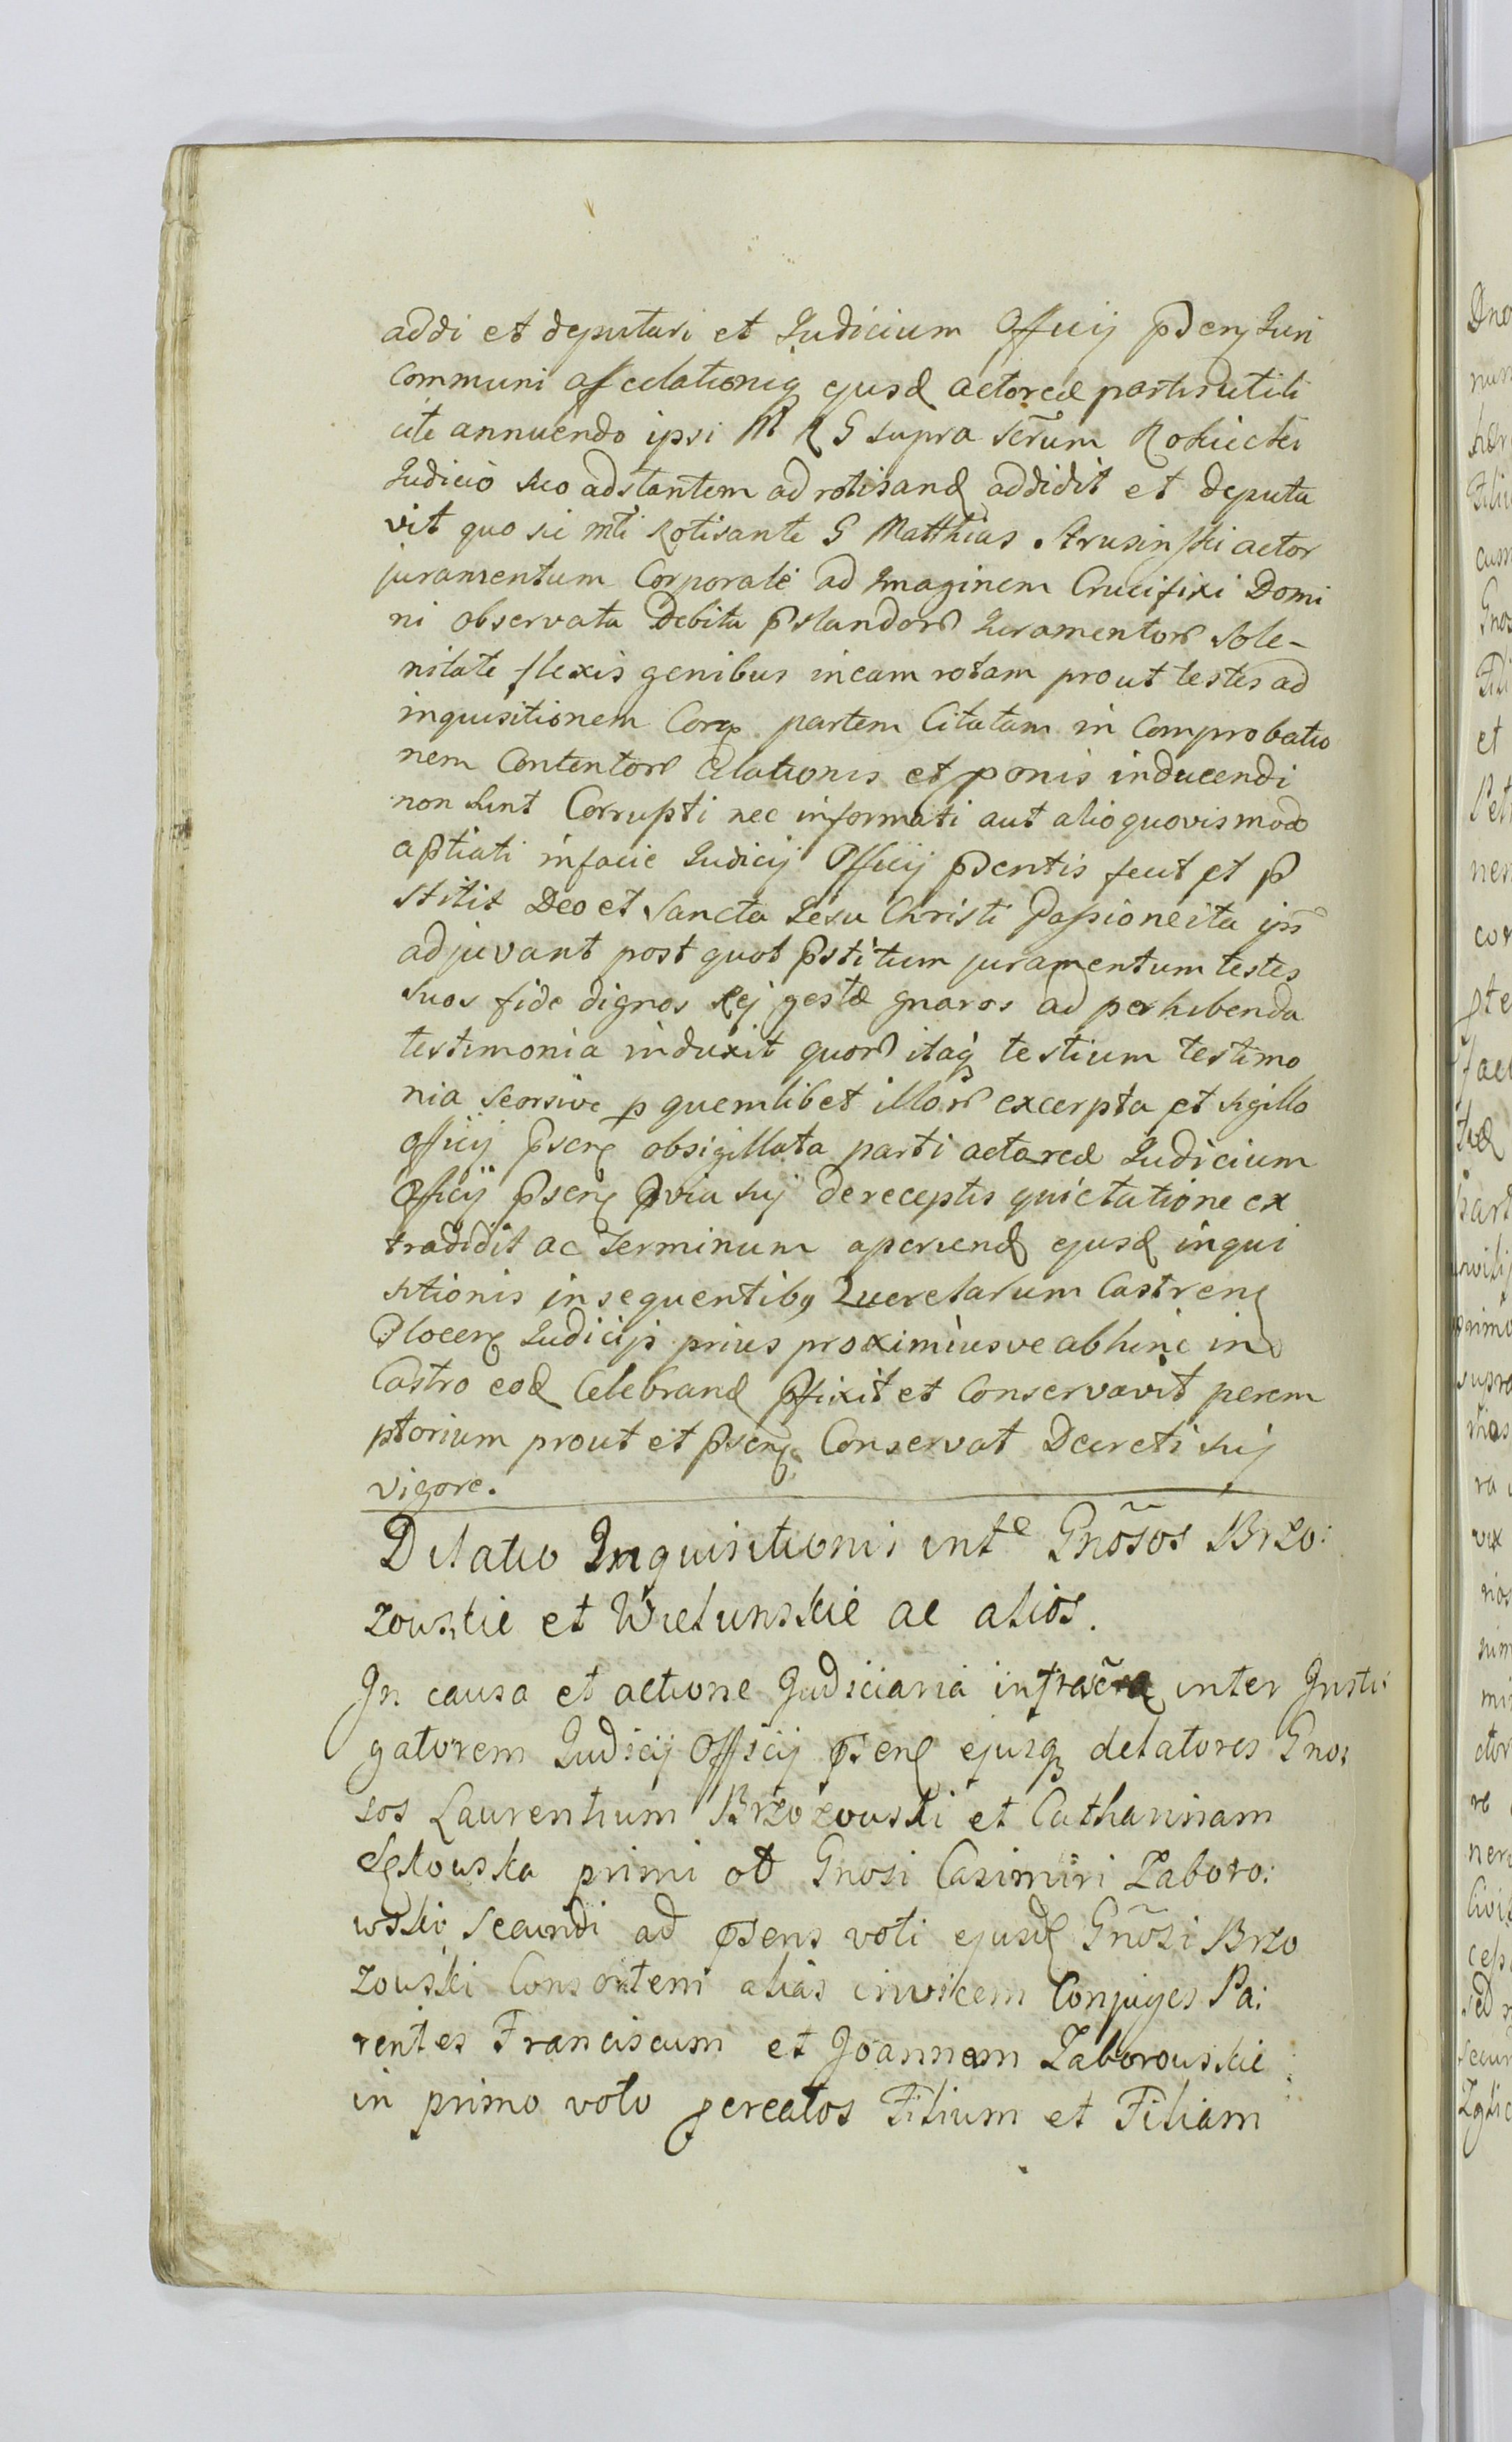 addi et deputari et Judicium Officij pden Juri
communi affectationiq ejusd actoreæ partis utili
cite annuendo ipsi M R G supra scrũm Rokiccki
Judicio suo adstantem ad rotisand addidit et deputa
vit quo sic mti Rotisante G Matthias Strusinski actor
juramentum Corporale ad Imaginem Crucifixi Domi
ni observata Debita pstandor Juramentor Sole-
nitate flexis genibus in eam rotam prout testes ad
inquisitionem Cora partem Citatam in Comprobatio
nem Contentor Delationis et ponis inducendi
non sunt Corrupti nec informati aut alio quovis modo
aptiati in facie Judicij Officij pdentis fecit et p
stitit Deo et Sancta Jesu Christi Passione ita ipsi
adjuvant post quot pstitum juramentum testes
suos fide dignos Rej gestæ gnaros ad perhibenda
testimonia induxit quor itaq testium testimo
nia seorsive p quemlibet illor excerpta et sigillo
officij psen obsigillata parti actoreæ Judicium
Officij psen pvia sui de receptis quietatione ex
tradidit ac Terminum aperiend ejusd inqui
sitionis in sequentibq Querelarum Castren
Plocen Judicijs prius proximiusve abhinc in
Castro eod Celebrand pfixit et Conservavit perem
ptorium prout et psen Conservat Decreti sui
vigore.
Dilatio Inquisitionis inte Gnõsos Brzo:
zouskie et Wielunskie ac alios.
In causa et actione Judiciaria infrascra inter Insti:
gatorem Judicij Officij psen ejusq delatores Gno:
sos Laurentium Brzozouski et Catharinam
primi ot Gnosi Casimiri Zaboro:
wski secundi ad psens voti ejusd Gnõsi Brzo
zouski Consortem alias invicem Conjuges Pa:
rentes Franciscum et Joannem Zaborouskie
in primo voto pcreatos Filium et Filiam